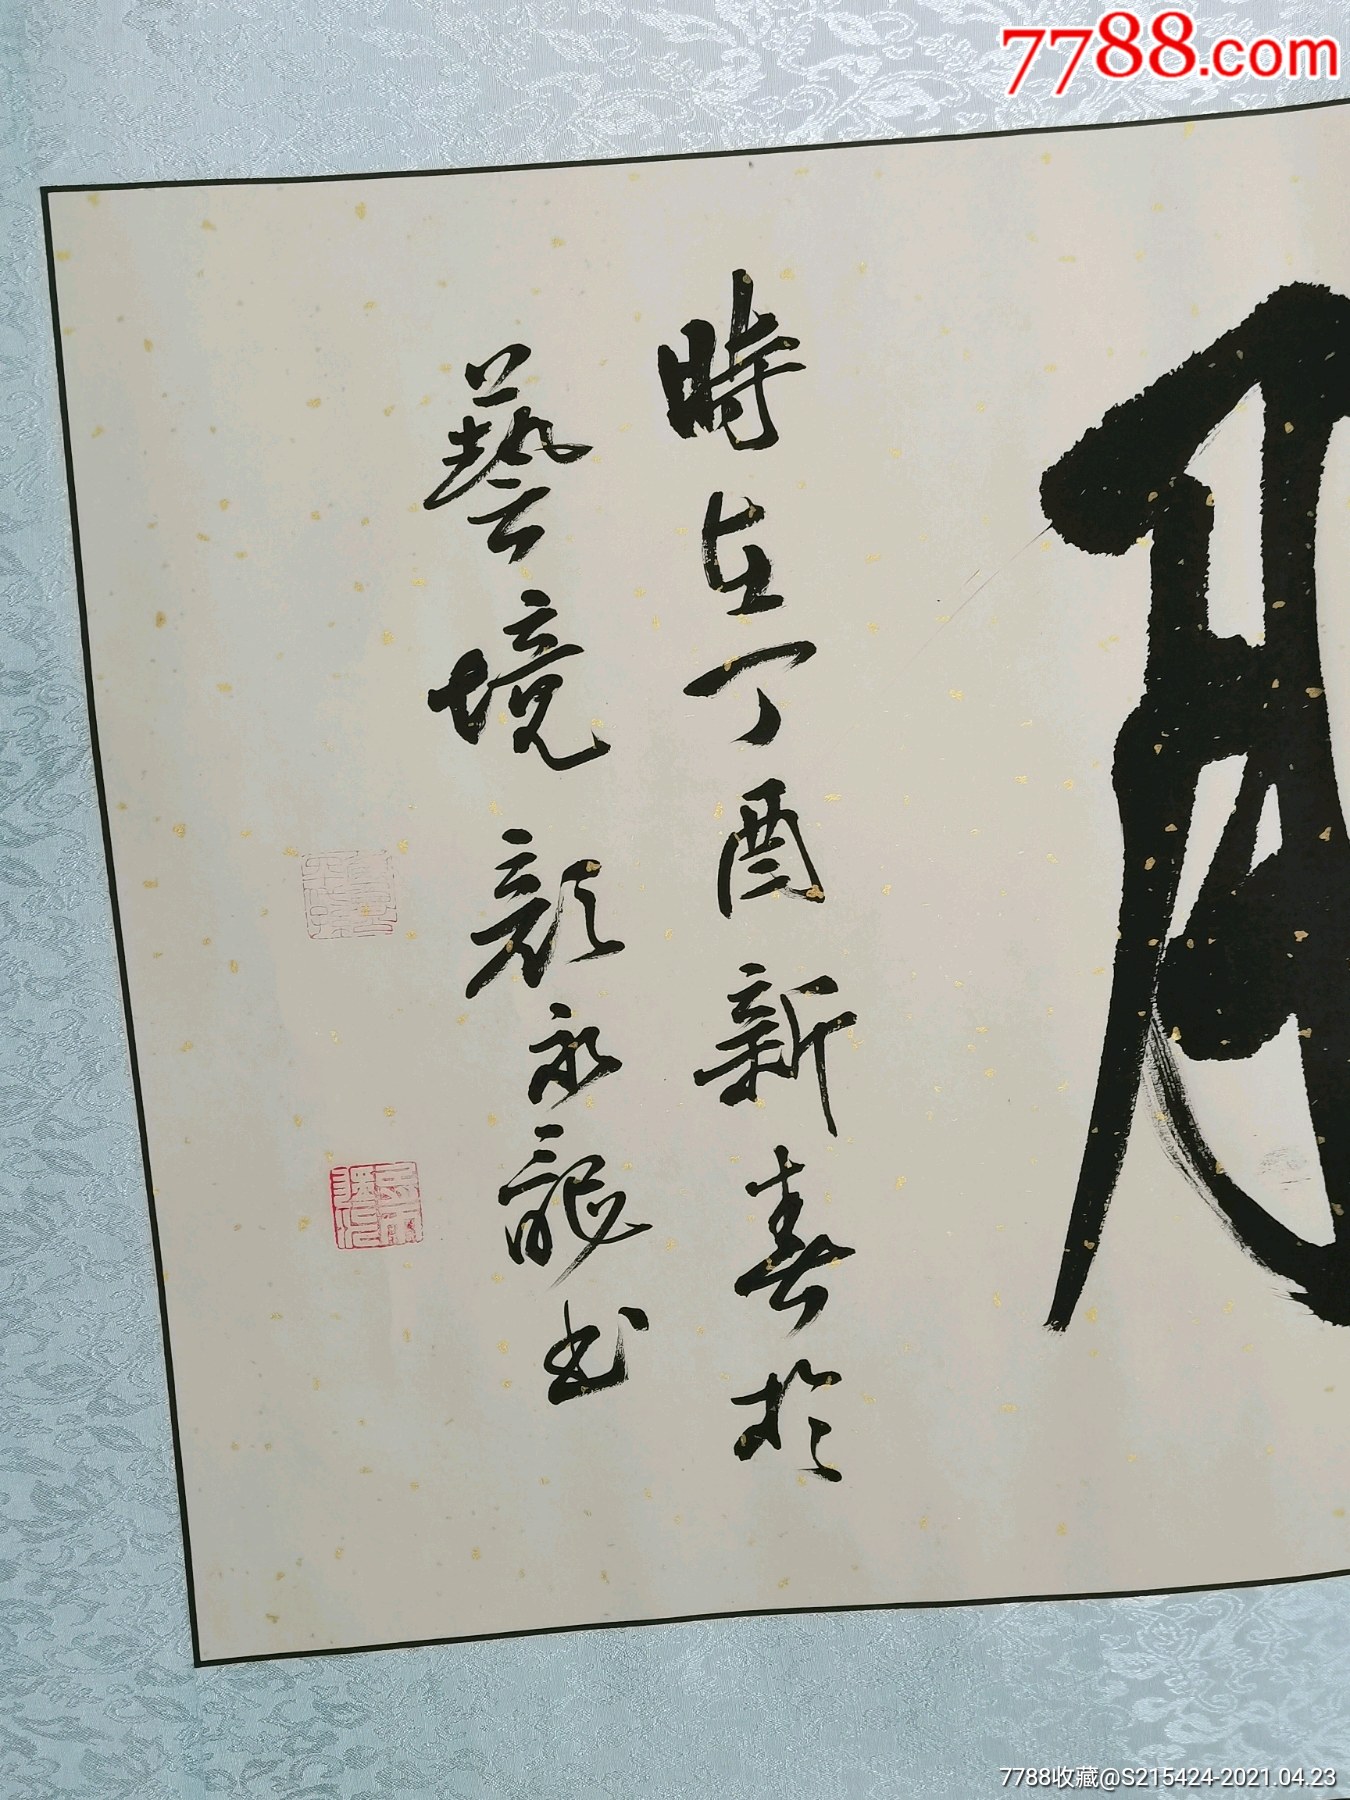 7788.com
時在丁酉新春於
藝境顏永龍書
7788收藏@S215424-2021.04.23